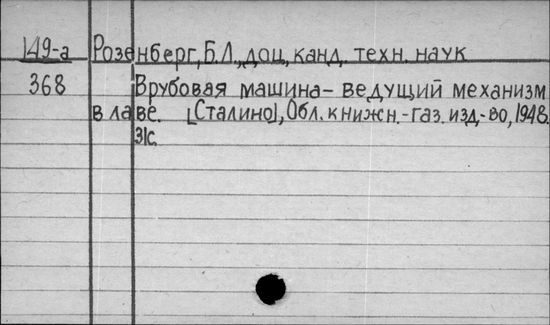 149-а Розенберг, Б.Л., доц., канд. техн. наук
368 Врубовая машина - ведущий механизм
в лаве. [Сталино], Обл. книжн.-газ. изд-во, 1948.
31с.